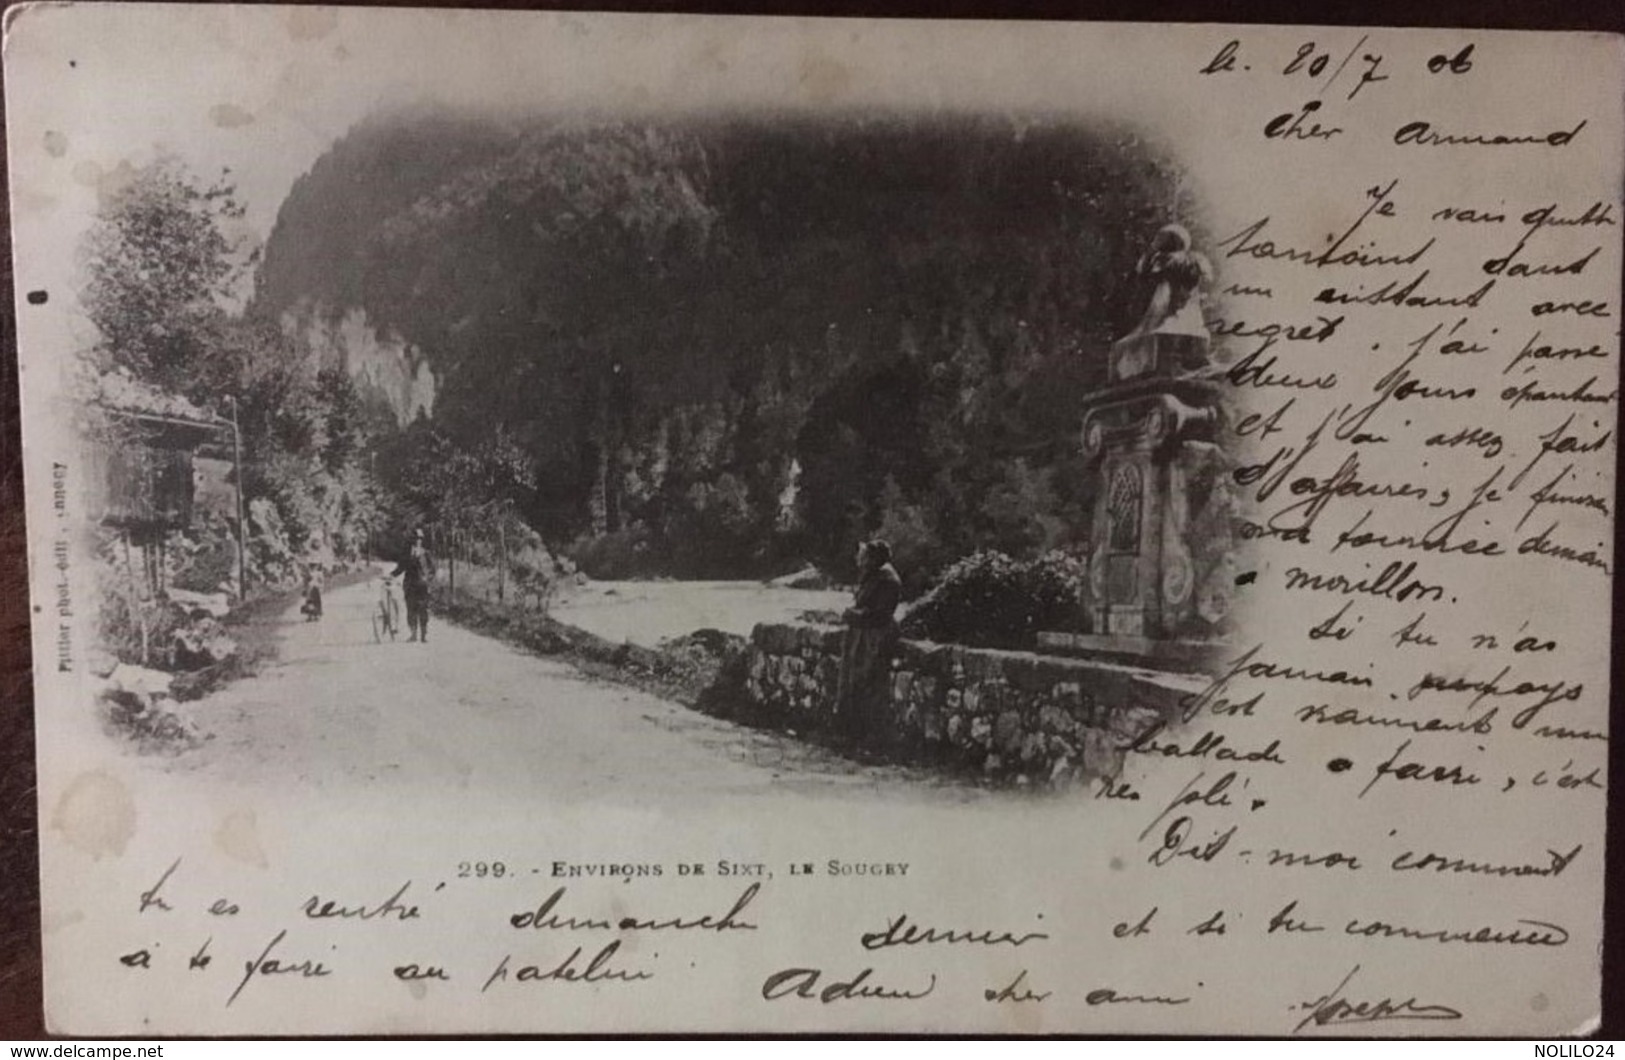 le. 20/7 06
Cher Armand
Je vais quitte
tantoint dant
un instant avec
regret. j'ai passé
deux jours épantant
et j'ai assez fait
d'affaires, je finirai
ma tournée demain
a morillon.
Si tu n'as
jamais pays
c'est vraiment une
ballade a faire, c'est
très joli.
Dit-moi comment
299. - ENVIRONS DE SIXT, LE SOUGEY
tu es rentré dimanche dernier et si tu commence
à te faire au patelin. Adieu cher ami Joseph
Pittier phot.-édit., Annecy
NOLILO24